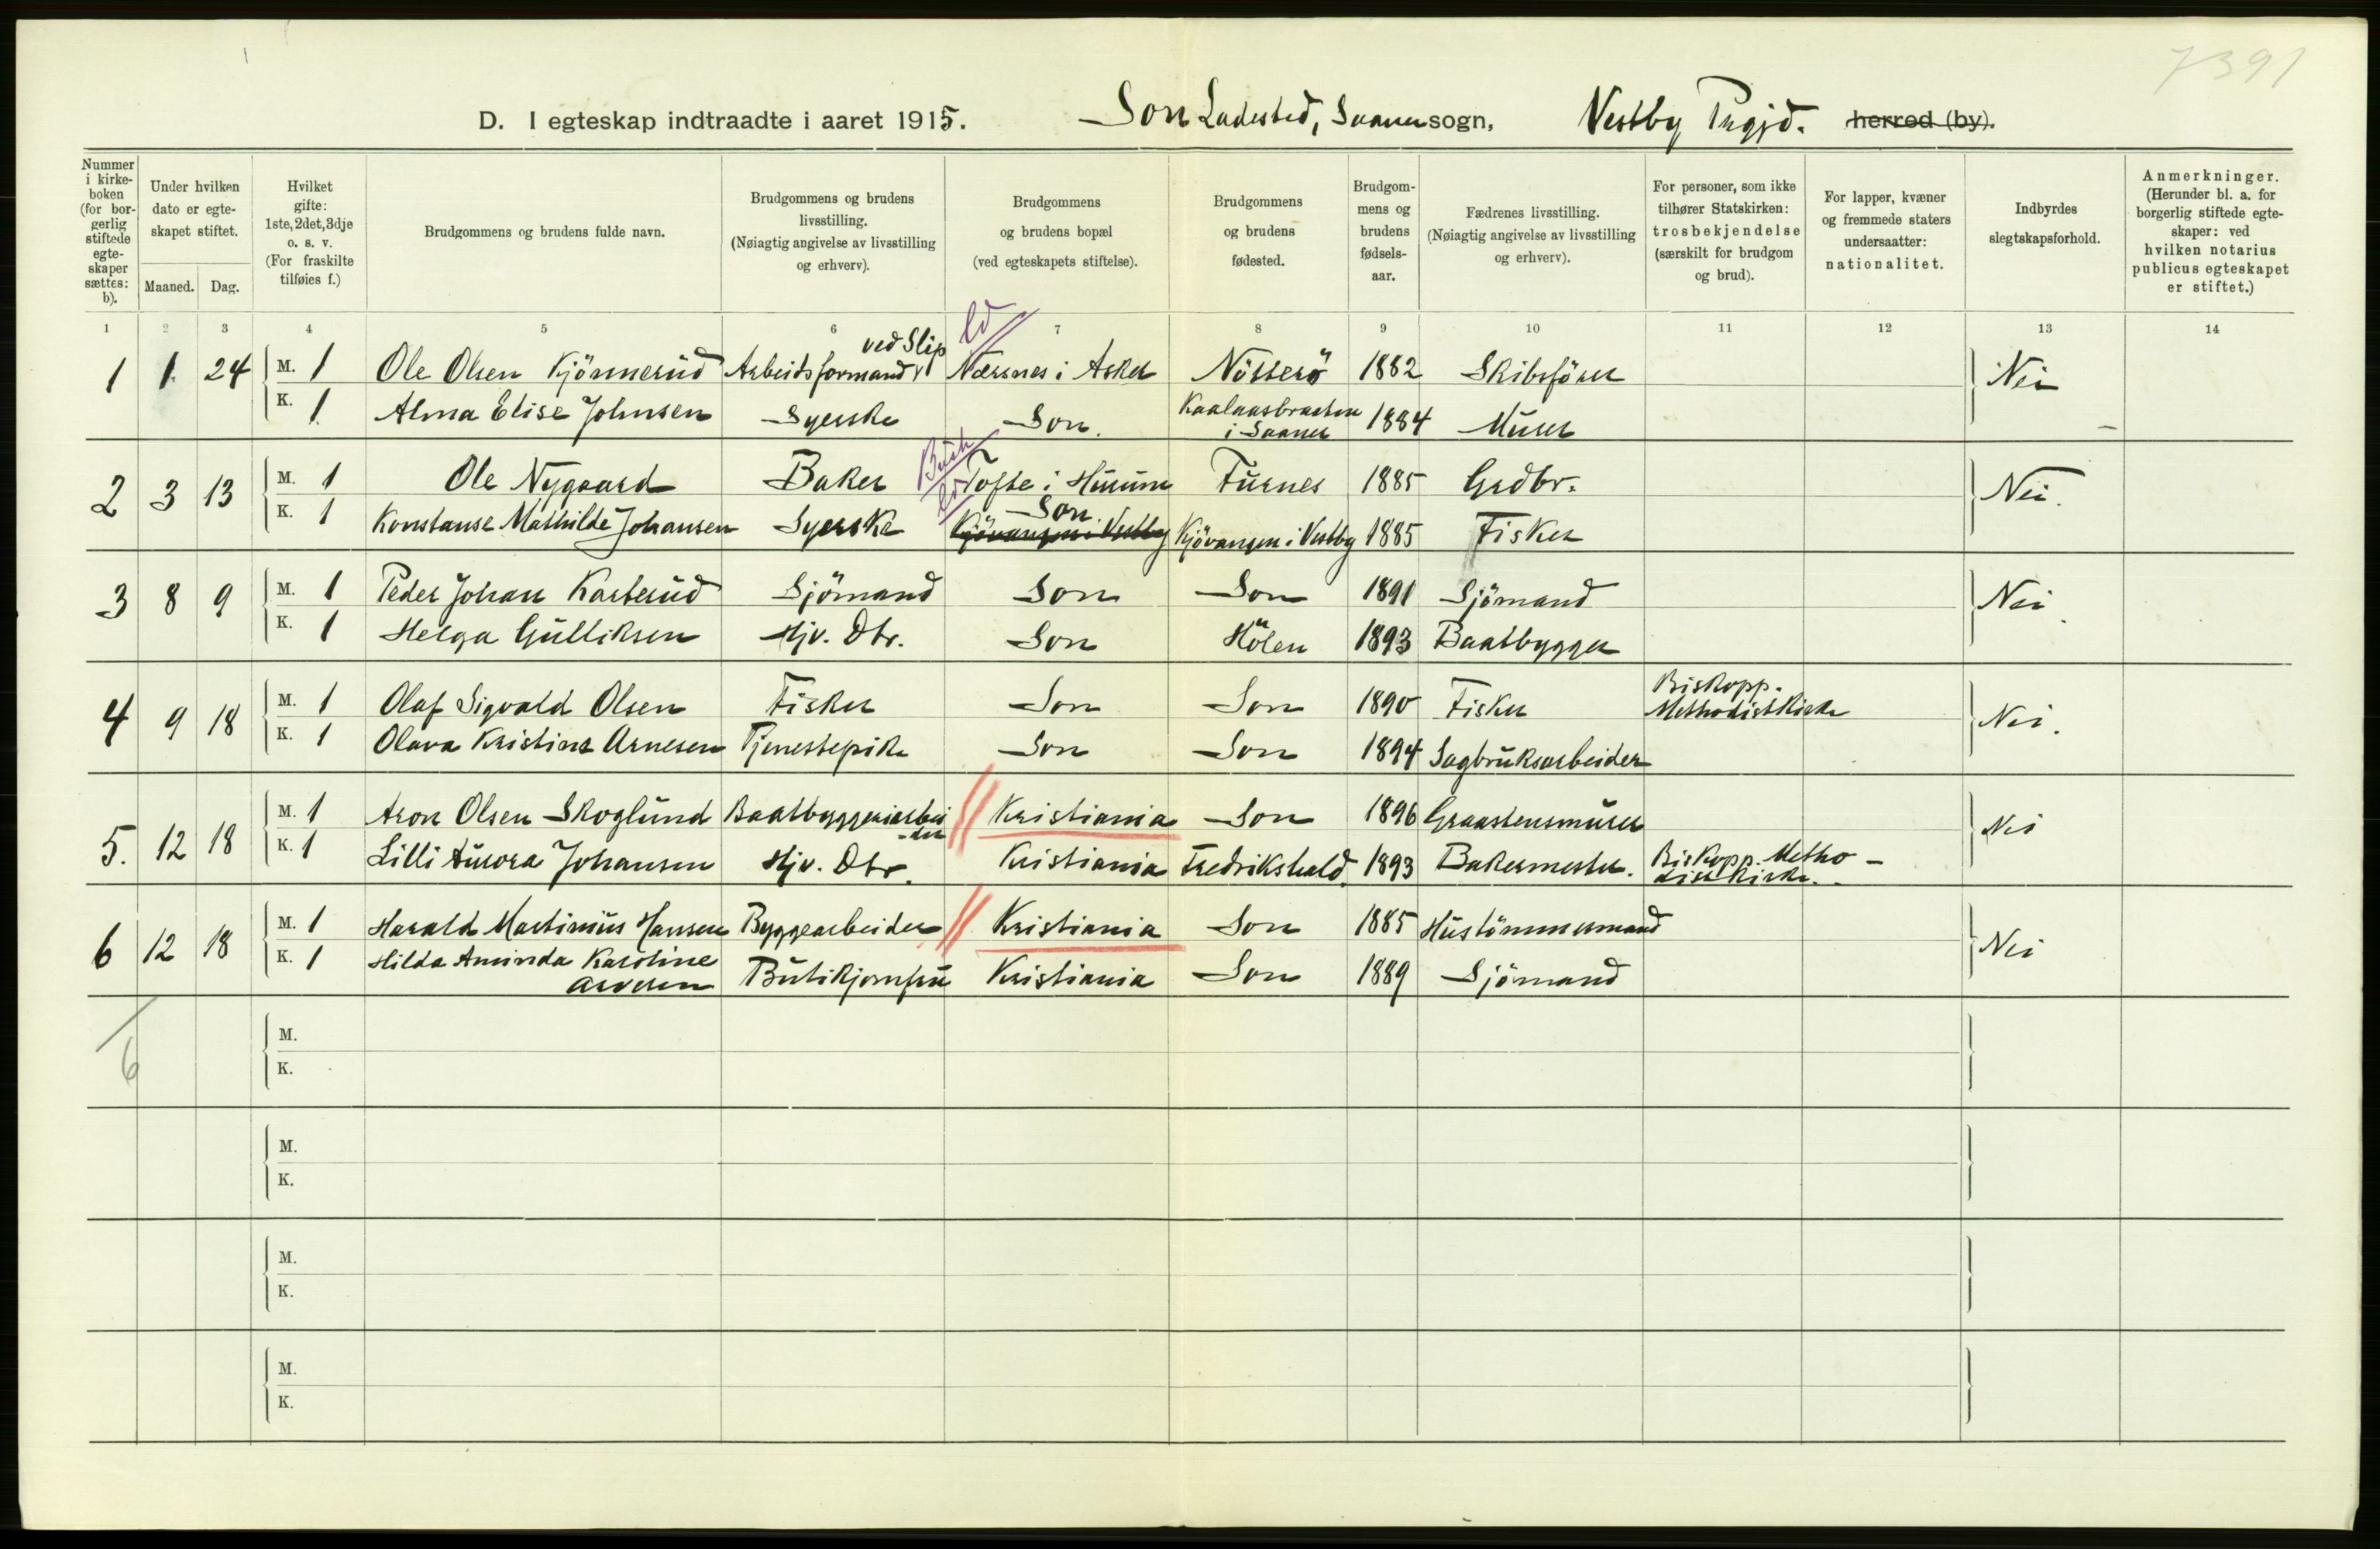 7391
D. I egteskap indtraadte i aaret 1915. Son Ladested, Saaner sogn, Vestby Prgjd. herred (by).
Nummer i kirke-boken (for bor-gerlig stiftede egte-skaper sættes: b).
Under hvilken dato er egte-skapet stiftet.
Maaned. Dag.
Hvilket gifte: 1ste, 2det, 3dje o. s. v. (For fraskilte tilføies f.)
Brudgommens og brudens fulde navn.
Brudgommens og brudens livsstilling. (Nøiagtig angivelse av livsstilling og erhverv).
Brudgommens og brudens bopæl (ved egteskapets stiftelse).
Brudgommens og brudens fødested.
Brudgom-mens og brudens fødsels-aar.
Fædrenes livsstilling. (Nøiagtig angivelse av livsstilling og erhverv).
For personer, som ikke tilhører Statskirken: trosbekjendelse (særskilt for brudgom og brud).
For lapper, kvæner og fremmede staters undersaatter: nationalitet.
Indbyrdes slegtskapsforhold.
Anmerkninger. (Herunder bl. a. for borgerlig stiftede egte-skaper: ved hvilken notarius publicus egteskapet er stiftet.)
1 2 3 4 5 6 7 8 9 10 11 12 13 14
ved Slip
1 1 24 M. 1 Ole Olsen Kjönnerud Arbeidsformand Nærsnes i Asker Nötterö 1882 Skibsförer Nei
K. 1 Alma Elise Johnsen Syerske Son. Kaalaasbraaten i Saaner 1884 Murer
2 3 13 M. 1 Ole Nygaard Baker Tofte i Hurum Furnes 1885 Grdbr. Nei.
Son
K. 1 Konstanse Mathilde Johansen Syerske Kjövangen i Vestby Kjövangen i Vestby 1885 Fisker
3 8 9 M. 1 Peder Johan Karterud Sjömand Son Son 1891 Sjömand Nei.
K. 1 Helga Gulliksen Hjv. Dtr. Son Hölen 1893 Baatbygger
4 9 18 M. 1 Olaf Sigvald Olsen Fisker Son Son 1890 Fisker Biskopp. Methodistkirke Nei.
K. 1 Olava Kristine Arnesen Tjenestepike Son Son 1894 Sagbruksarbeider
5. 12 18 M. 1 Aron Olsen Skoglund Baatbyggeriarbei-der Kristiania Son 1896 Graastensmurer Nei
K. 1 Lilli Aurora Johansen Hjv. Dtr. Kristiania Fredrikshald. 1893 Bakermester. Biskopp. Metho-distkirke.
6 12 18 M. 1 Harald Martinius Hansen Byggearbeider Kristiania Son 1885 Hustömmermand Nei
K. 1 Hilda Aminda Karoline Arvesen Butikjomfru Kristiania Son 1889 Sjömand
6
M.
K.
M.
K.
M.
K.
M.
K.